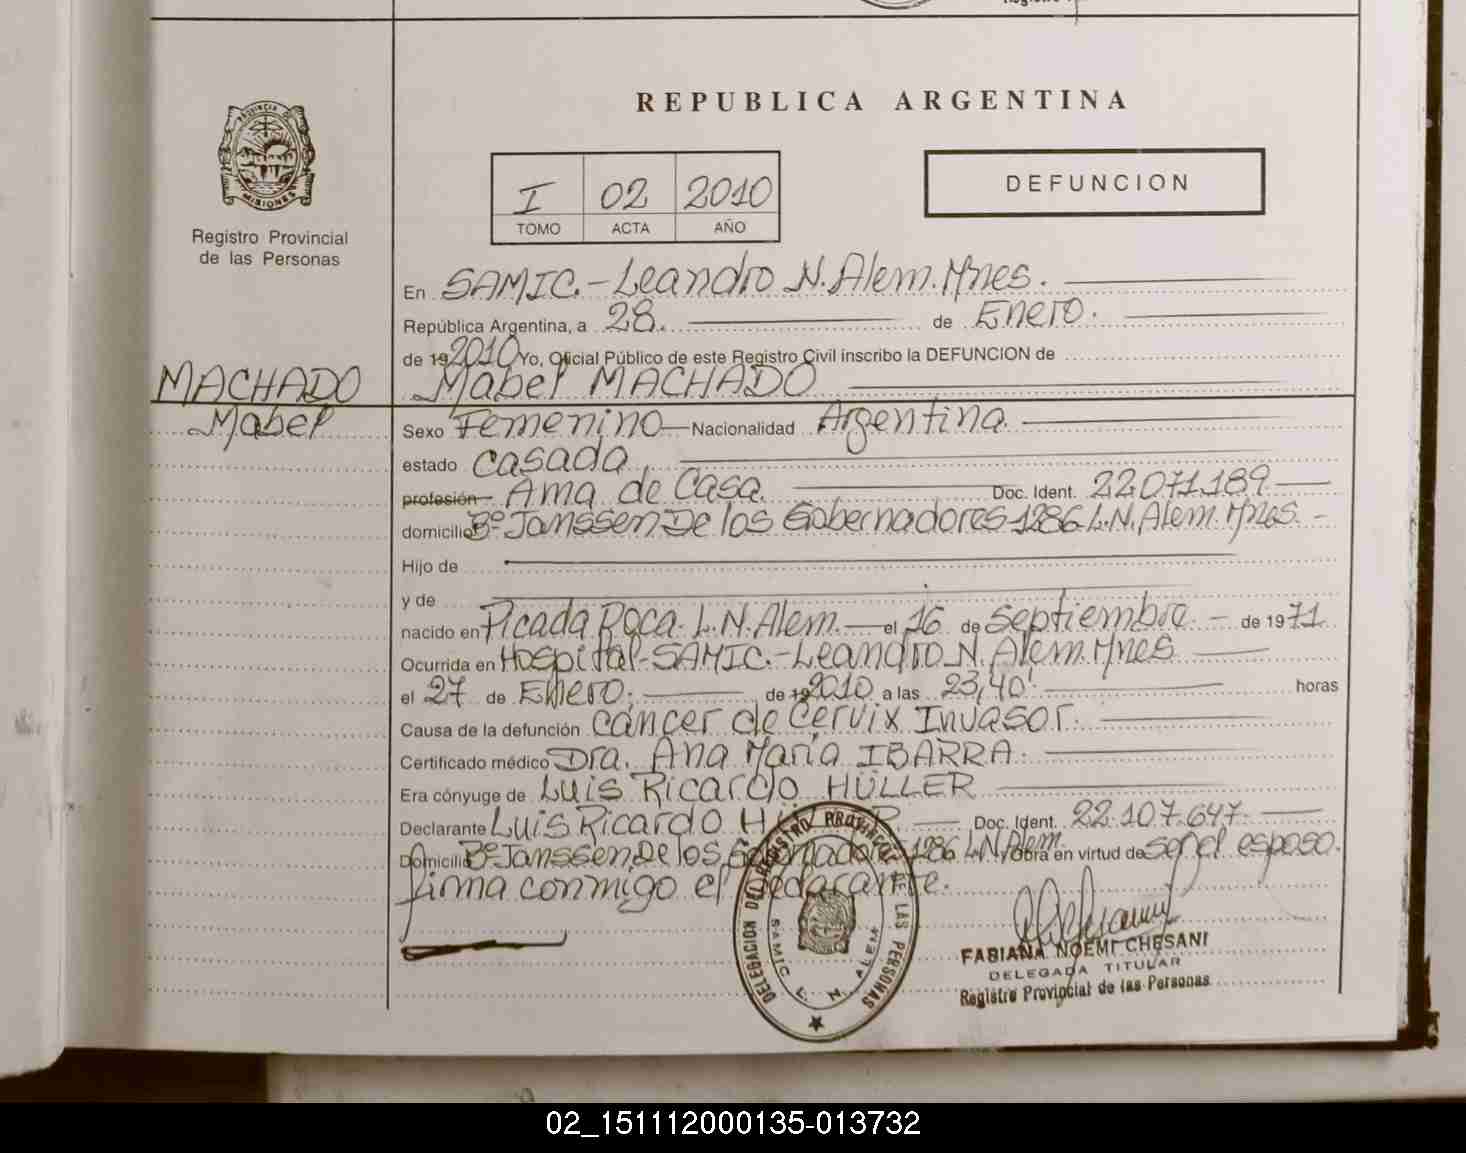 REPUBLICA ARGENTINA
PROVINCIA DE
MISIONES
Registro Provincial
de las Personas
I 02 2010
TOMO ACTA AÑO
DEFUNCION
En SAMIC.-Leandro N. Alem. Mnes.
República Argentina, a 28. de Enero.
de 19 2010 Yo, Oficial Público de este Registro Civil inscribo la DEFUNCION de
MACHADO
Mabel
Mabel MACHADO
Sexo Femenino Nacionalidad Argentina.
estado Casada
profesión Ama de Casa. Doc. Ident. 22.071.189
domicilio Bº Janssen De los Gobernadores 1286 L.N. Alem. Mnes.-
Hijo de
y de
nacido en Picada Poca. L.N. Alem. el 16 de Septiembre. - de 1971
Ocurrida en Hospital-SAMIC.-Leandro N. Alem. Mnes
el 27 de Enero. de 19 2010 a las 23,40' horas
Causa de la defunción Cáncer de Cervix Invasor.
Certificado médico Dra. Ana María IBARRA.
Era cónyuge de Luis Ricardo HÜLLER
Declarante Luis Ricardo HÜLLER Doc. Ident. 22.107.647.
Domicilio Bº Janssen De los Gobernadores 1286 L.N. Alem. Obra en virtud de ser el esposo.
firma conmigo el declarante.
DELEGACION DEL REGISTRO PROVINCIAL DE LAS PERSONAS
SAMIC L. N. ALEM
FABIANA NOEMI CHESANI
DELEGADA TITULAR
Registro Provincial de las Personas
02_151112000135-013732